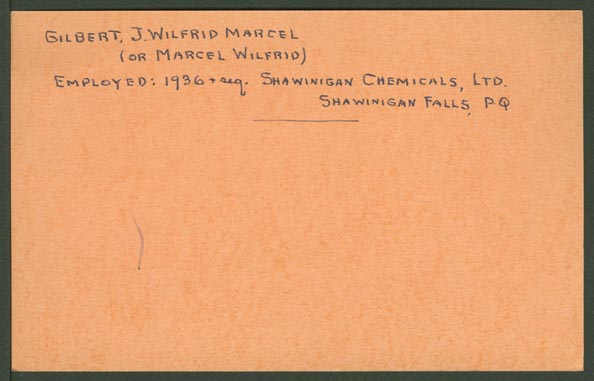 GILBERT, J. WILFRID MARCEL
(OR MARCEL WILFRID)
EMPLOYED: 1936 + seq. SHAWINIGAN CHEMICALS, LTD.
SHAWINIGAN FALLS, PQ